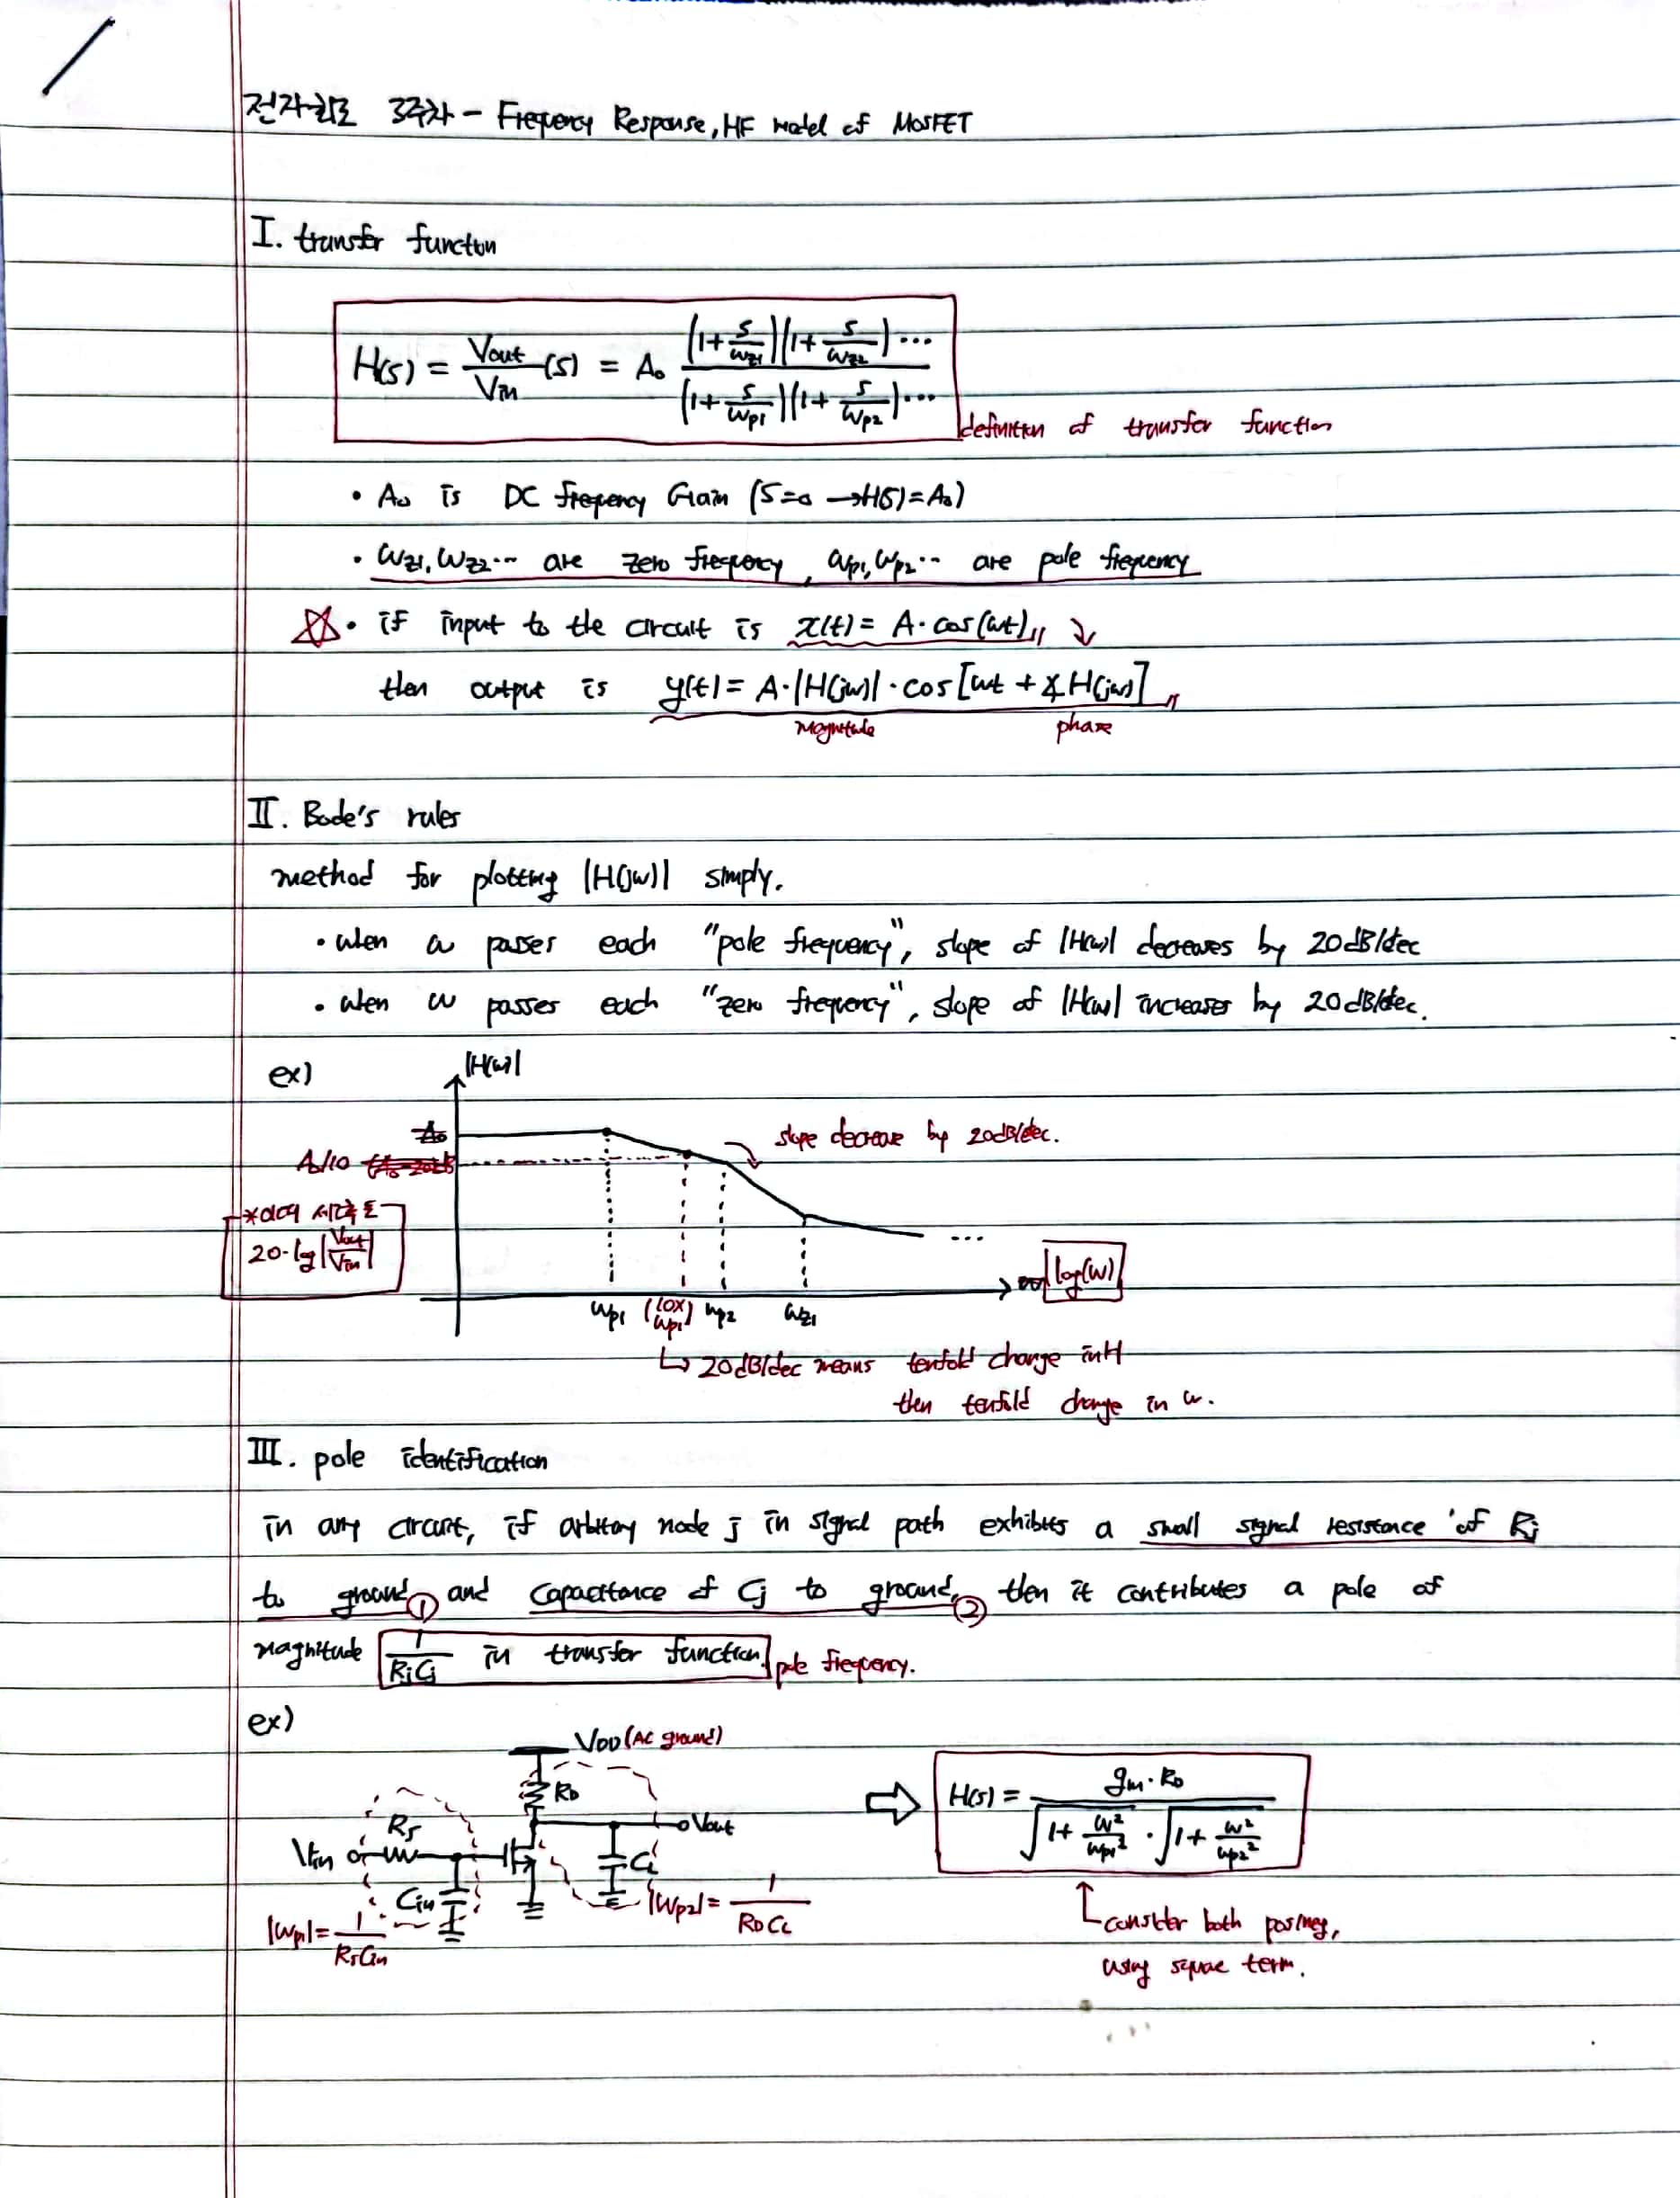 전자회로 3주차 - Frequency Response, HF model of MOSFET
I. transfer function
H(s) = Vout/Vin (s) = A₀ (1+s/ωz1)(1+s/ωz2)… / (1+s/ωp1)(1+s/ωp2)…
definition of transfer function
• A₀ is DC frequency Gain (S=0 → H(S)=A₀)
• ωz1, ωz2… are zero frequency, ωp1, ωp2… are pole frequency
☆ • if input to the circuit is x(t) = A·cos(ωt)
then output is y(t) = A·|H(jω)|·cos[ωt + ∡H(jω)]
magnitude phase
II. Bode's rules
method for plotting |H(jω)| simply.
• when ω passes each "pole frequency", slope of |H(ω)| decreases by 20dB/dec
• when ω passes each "zero frequency", slope of |H(ω)| increases by 20dB/dec.
ex) |H(ω)|
A₀
slope decrease by 20dB/dec.
A₀/10
20·log|Vout/Vin|
log(ω)
ωp1 (10× ωp1) ωp2 ωz1
↳ 20dB/dec means tenfold change in H
then tenfold change in ω.
III. pole identification
in any circuit, if arbitray node j in signal path exhibits a small signal resistance of Rj
to ground ① and capacitance of Cj to ground, ② then it contributes a pole of
magnitude 1/RjCj in transfer function. pole frequency.
ex)
VDD (AC ground)
RD
Vout
RS
Vin
Cin
CL
|ωp1| = 1/RsCin
|ωp2| = 1/RDCL
⇨ H(s) = gm·RD / √(1+ω²/ωp1²) · √(1+ω²/ωp2²)
consider both pos/neg,
using square term.